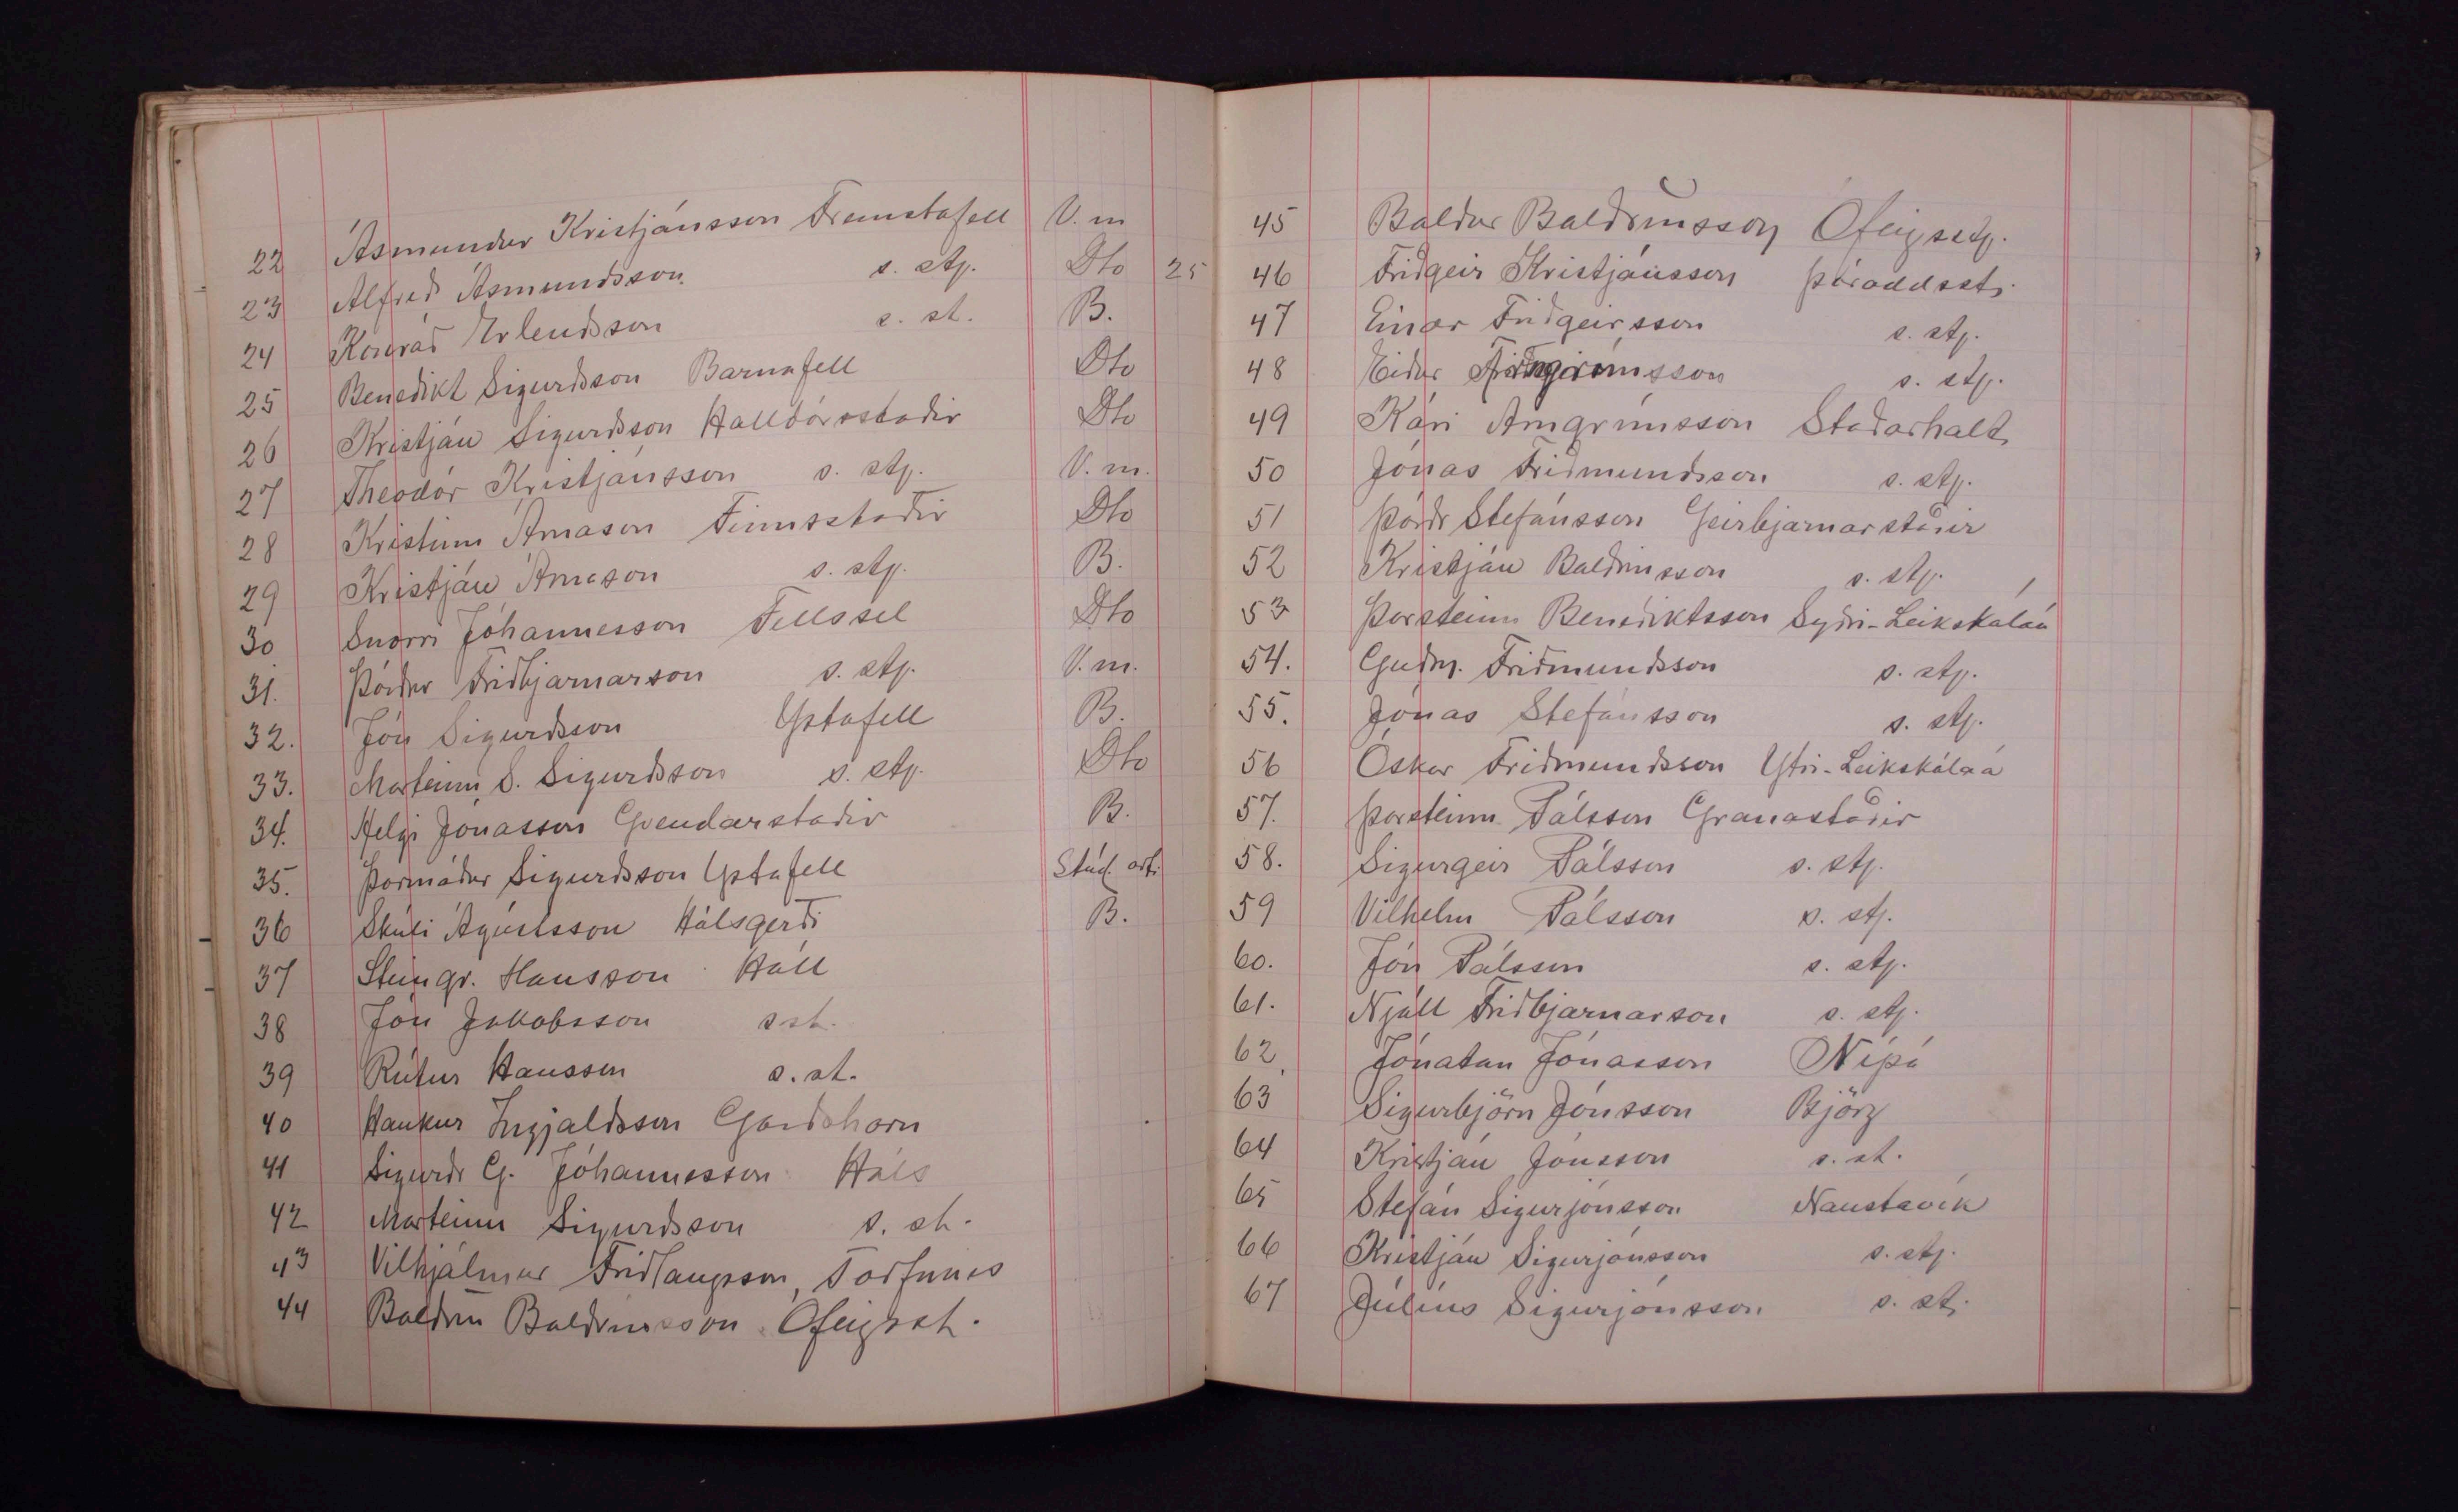 22 Ásmundur Kristjánsson Fremstafell V.m
23 Alfred Ásmundsson s. stp. Dto 25
24 Konráð Erlendsson s. st. B.
25 Benedikt Sigurðsson Barnafell Dto
26 Kristján Sigurðsson Halldórsstaðir Dto
27 Theodór Kristjánsson s. stp. V.m.
28 Kristinn Árnason Finnsstaðir Dto
29 Kristján Árnason s. stp. B.
30 Snorri Jóhannesson Fellssel Dto
31. Þórður Friðbjarnarson s. stp. V.m.
32. Jón Sigurðsson Ystafell B.
33. Marteinn S. Sigurðsson s. stp. Dto
34. Helgi Jónasson Gvendarstaðir B.
35. Þormóður Sigurðsson Ystafell Stúd. art.
36 Skúli Ágústsson Hálsgerði B.
37 Steingr. Hansson Háll
38 Jón Jakobsson s st.
39 Rútur Hansson s. st.
40 Haukur Ingjaldsson Garðshorn
41 Sigurðr G. Jóhannesson Háls
42 Marteinn Sigurðsson s. st.
43 Vilhjálmur Friðlaugsson, Torfunes
44 Baldvin Baldvinsson Ófeigsst.
45 Baldur Baldvinsson Ófeigsstp.
46 Friðgeir Kristjánsson Þóroddsst.
47 Einar Friðgeirsson s. stp.
48 Eiður s. stp.
49 Kári Arngrímsson Staðarholt
50 Jónas Friðmundsson s. stp.
51 Þórðr Stefánsson Geirbjarnarstaðir
52 Kristján Baldvinsson s. stp.
53 Þorsteinn Benediktsson Syðri-Leikskálaá
54. Guðm. Friðmundsson s. stp.
55. Jónas Stefánsson s. stp.
56 Óskar Friðmundsson Ytri-Leikskálaá
57. Þorsteinn Pálsson Granastaðir
58. Sigurgeir Pálsson s. stp.
59 Vilhelm Pálsson s. stp.
60. Jón Pálsson s. stp.
61. Njáll Friðbjarnarson s. stp.
62. Jónatan Jónasson Nípá
63 Sigurbjörn Jónsson Björg
64 Kristján Jónsson s. st.
65 Stefán Sigurjónsson Naustavík
66 Kristján Sigurjónsson s. stp.
67 Júlíus Sigurjónsson s. st.